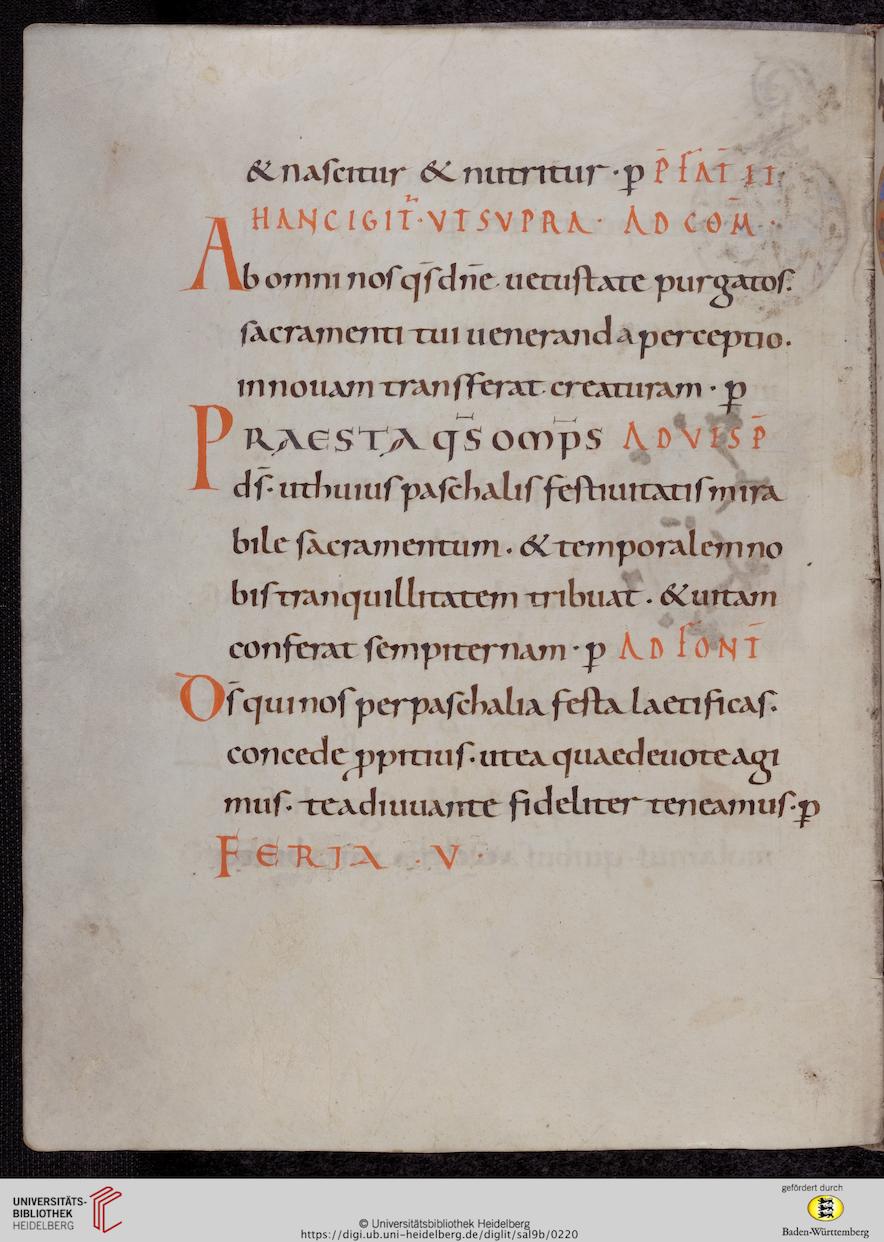 & nascitur & nutritur · p̄ P̄FAT̄ II
HANC IGIT̃ · UT SUPRA · AD COM̄ ·
Ab omni nos q̄s dn̄e · uetustate purgatos ·
sacramenti tui ueneranda perceptio ·
in nouam transferat creaturam · p̄
PRAESTA q̄S OMP̄S AD UESP̄
ds̄ · ut huius paschalis festiuitatis mira
bile sacramentum · & temporalem no
bis tranquillitatem tribuat · & uitam
conferat sempiternam · p̄ AD FONT̄
Ds̄ qui nos per paschalia festa laetificas ·
concede ꝓpitius · ut ea quae deuote agi
mus · te adiuuante fideliter teneamus · p̄
FERIA · V ·
UNIVERSITÄTS-
BIBLIOTHEK
HEIDELBERG
© Universitätsbibliothek Heidelberg
https://digi.ub.uni-heidelberg.de/diglit/sal9b/0220
gefördert durch
Baden-Württemberg